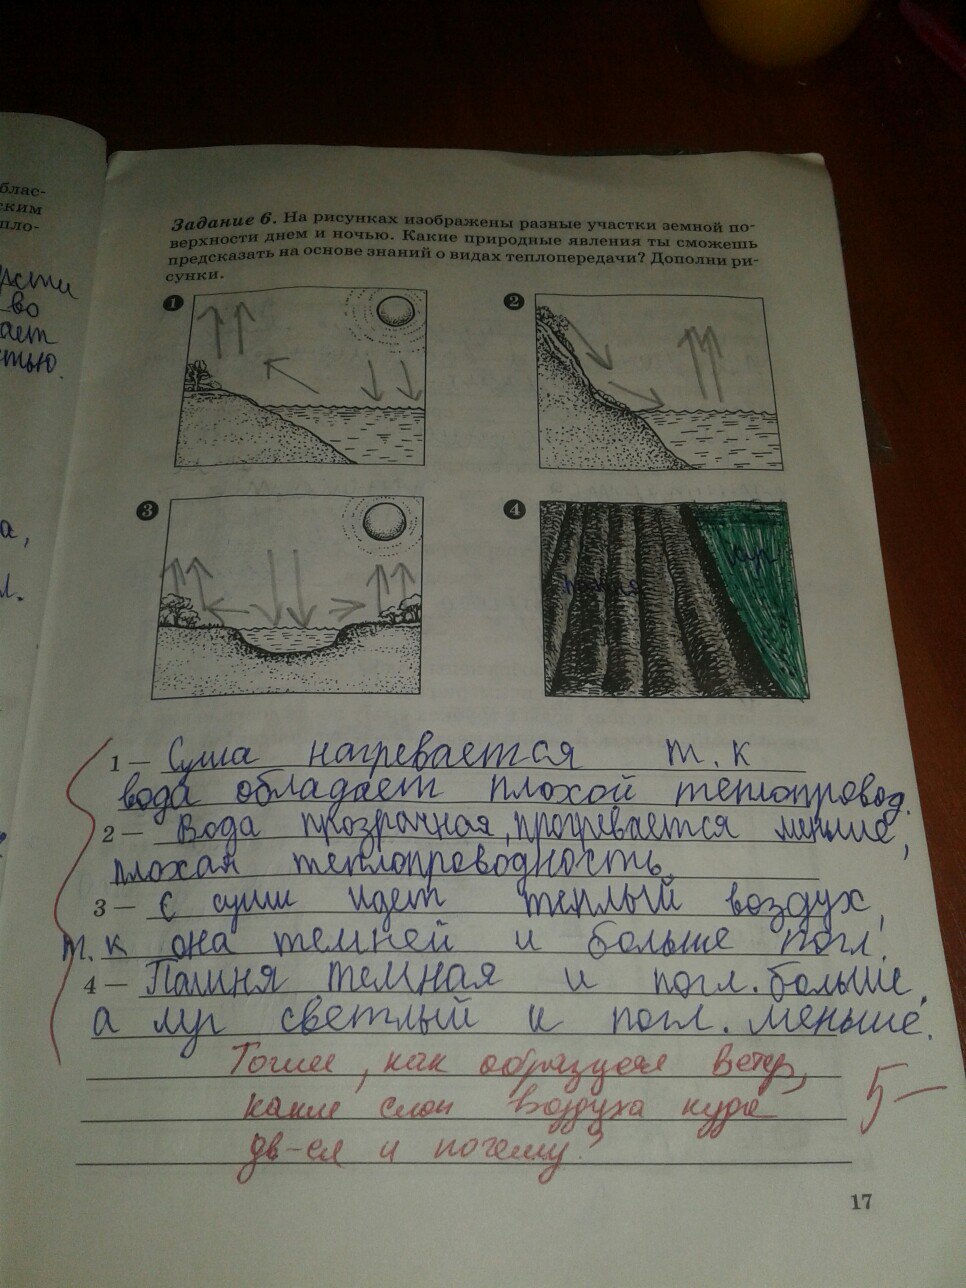 блас-
ским
пло-
во
ает
стью.
Задание 6. На рисунках изображены разные участки земной по-
верхности днем и ночью. Какие природные явления ты сможешь
предсказать на основе знаний о видах теплопередачи? Дополни ри-
сунки.
1
2
3
4
пашня
луг
1 — Суша нагревается т. к
вода обладает плохой теплопровод.
2 — Вода прозрачная, прогревается меньше,
плохая теплопроводность.
3 — С суши идет теплый воздух,
т. к она темней и больше погл.
4 — Пашня темная и погл. больше,
а луг светлый и погл. меньше.
Точнее, как образуется ветер,
какие слои воздуха куда
дв-ся и почему?
5-
17